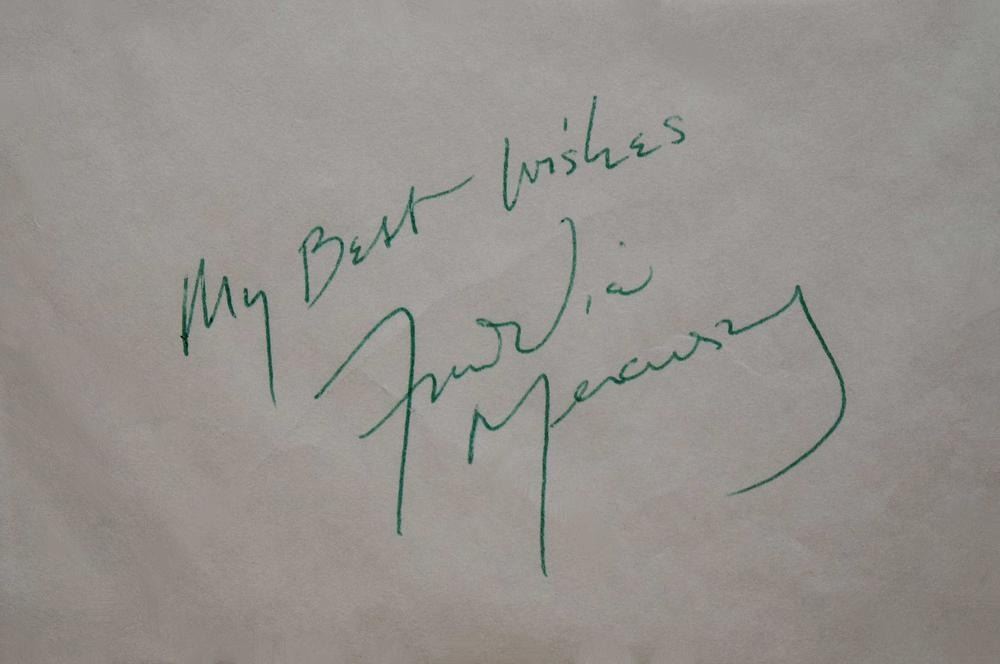 My Best Wishes
Freddie
Mercury